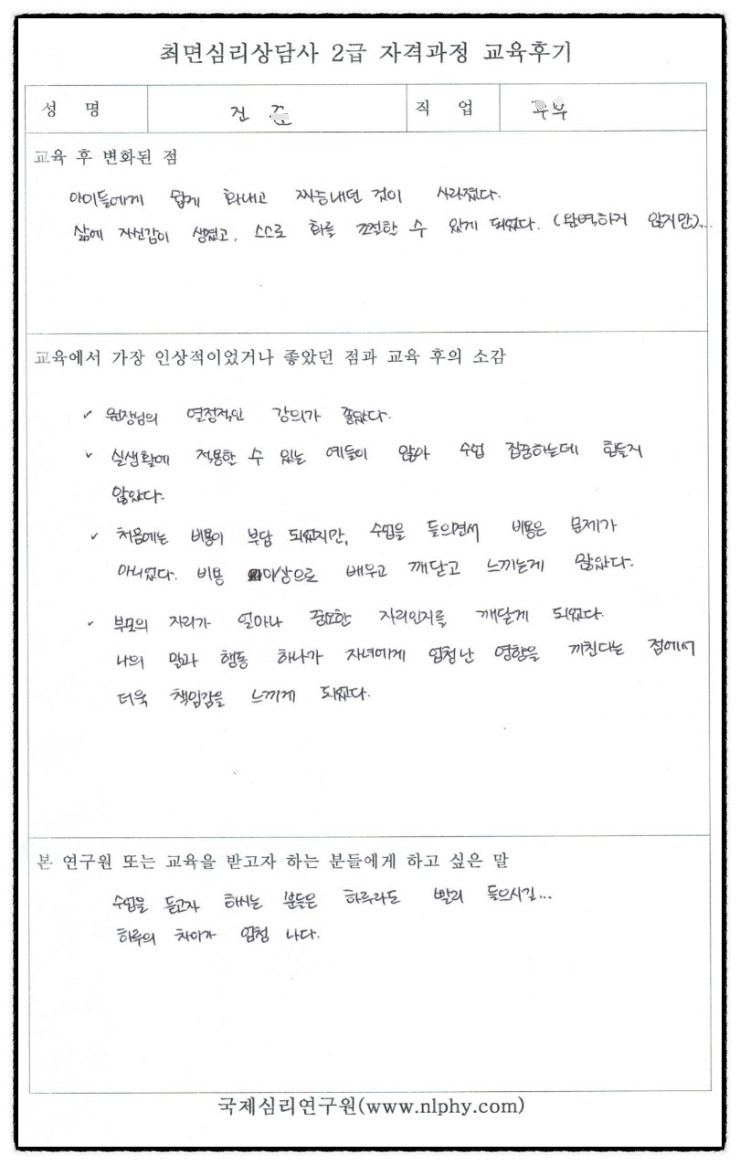 최면심리상담사 2급 자격과정 교육후기
성 명
직 업
교육 후 변화된 점
아이들에게 쉽게 화내고 짜증내던 것이 사라졌다.
삶에 자신감이 생겼고, 스스로 화를 조절할 수 있게 되었다. (완벽하지 않지만)...
교육에서 가장 인상적이었거나 좋았던 점과 교육 후의 소감
✓ 원장님의 열정적인 강의가 좋았다.
✓ 실생활에 적용할 수 있는 예들이 많아 수업 집중하는데 힘들지
않았다.
✓ 처음에는 비용이 부담 되었지만, 수업을 들으면서 비용은 문제가
아니었다. 비용 이상으로 배우고 깨닫고 느끼는게 많았다.
✓ 부모의 자리가 얼마나 중요한 자리인지를 깨닫게 되었다.
나의 말과 행동 하나가 자녀에게 엄청난 영향을 끼친다는 점에서
더욱 책임감을 느끼게 되었다.
본 연구원 또는 교육을 받고자 하는 분들에게 하고 싶은 말
수업을 듣고자 하시는 분들은 하루라도 빨리 들으시길...
하루의 차이가 엄청 나다.
국제심리연구원(www.nlphy.com)